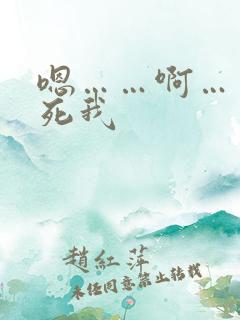 嗯……啊…
死我
趙紅萍
未經同意禁止轉載